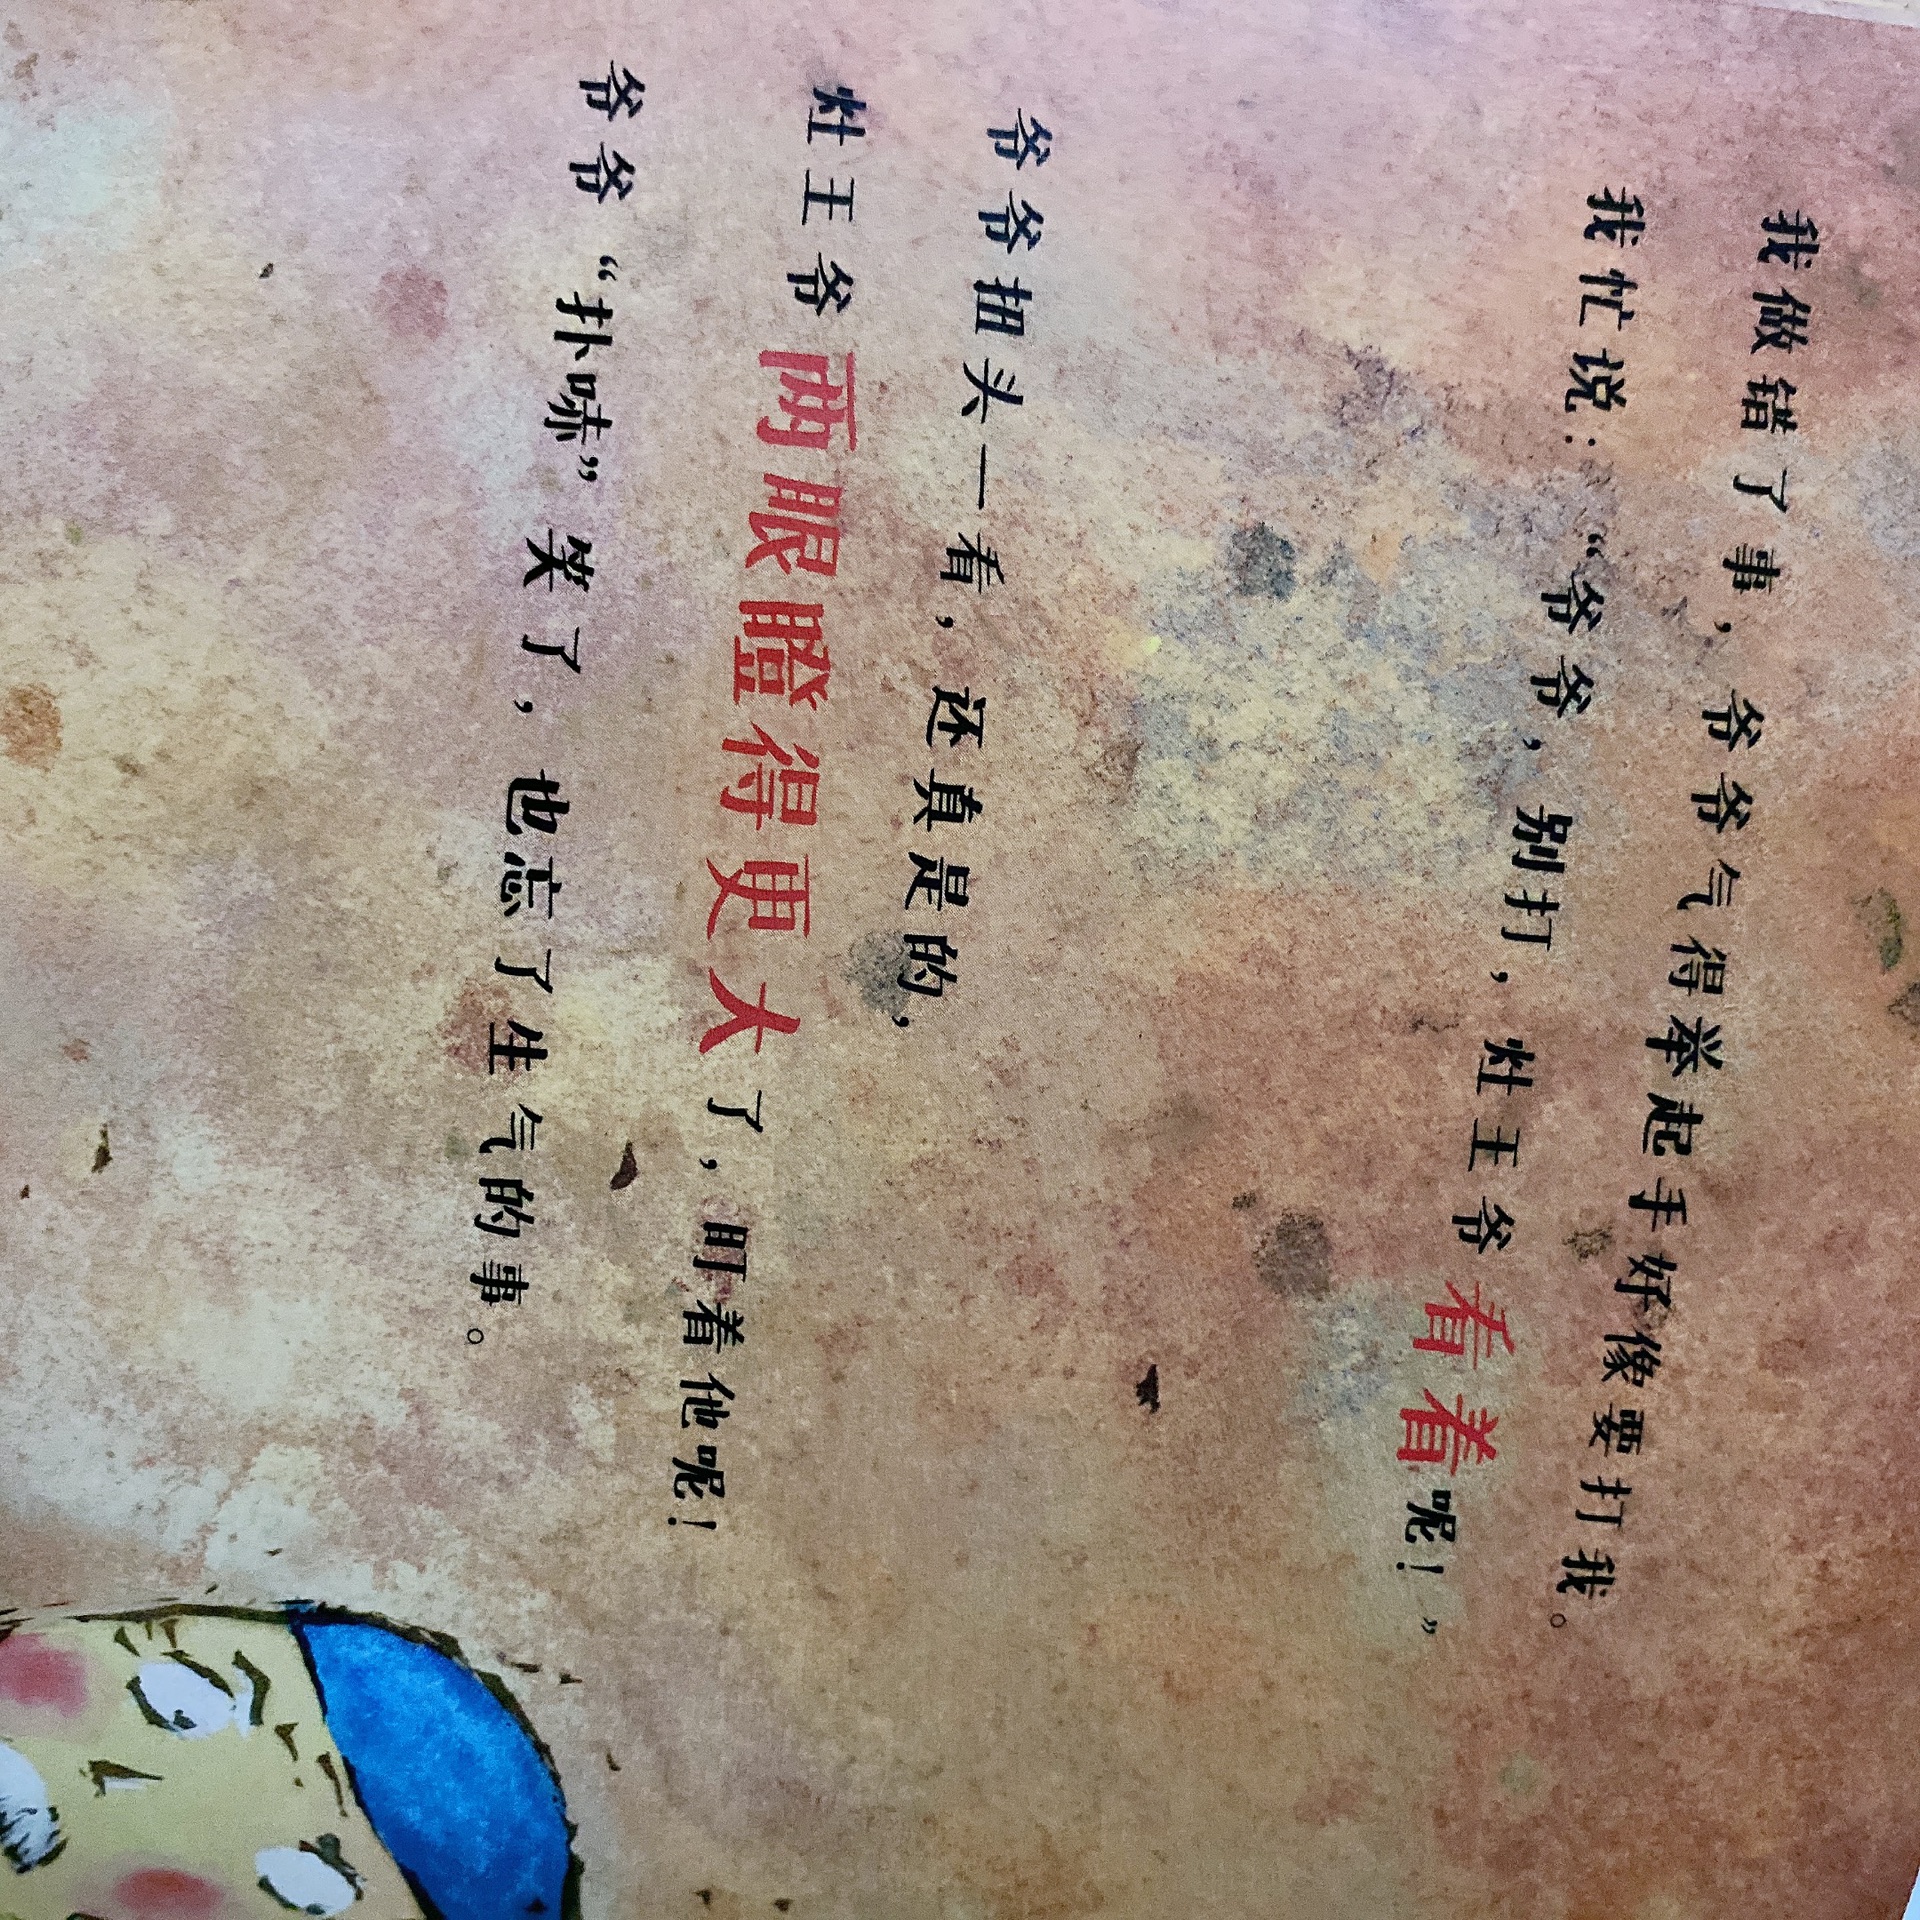 我做错了事，爷爷气得举起手好像要打我。
我忙说：“爷爷，别打，灶王爷看着呢！”
爷爷扭头一看，还真是的，
灶王爷两眼瞪得更大了，盯着他呢！
爷爷“扑哧”笑了，也忘了生气的事。